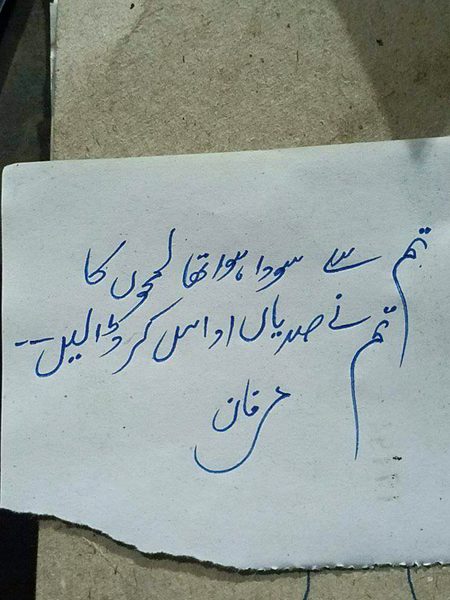 تم سے سودا ہوا تھا لمحوں کا
تم نے صدیاں اداس کر ڈالیں--
عرفان